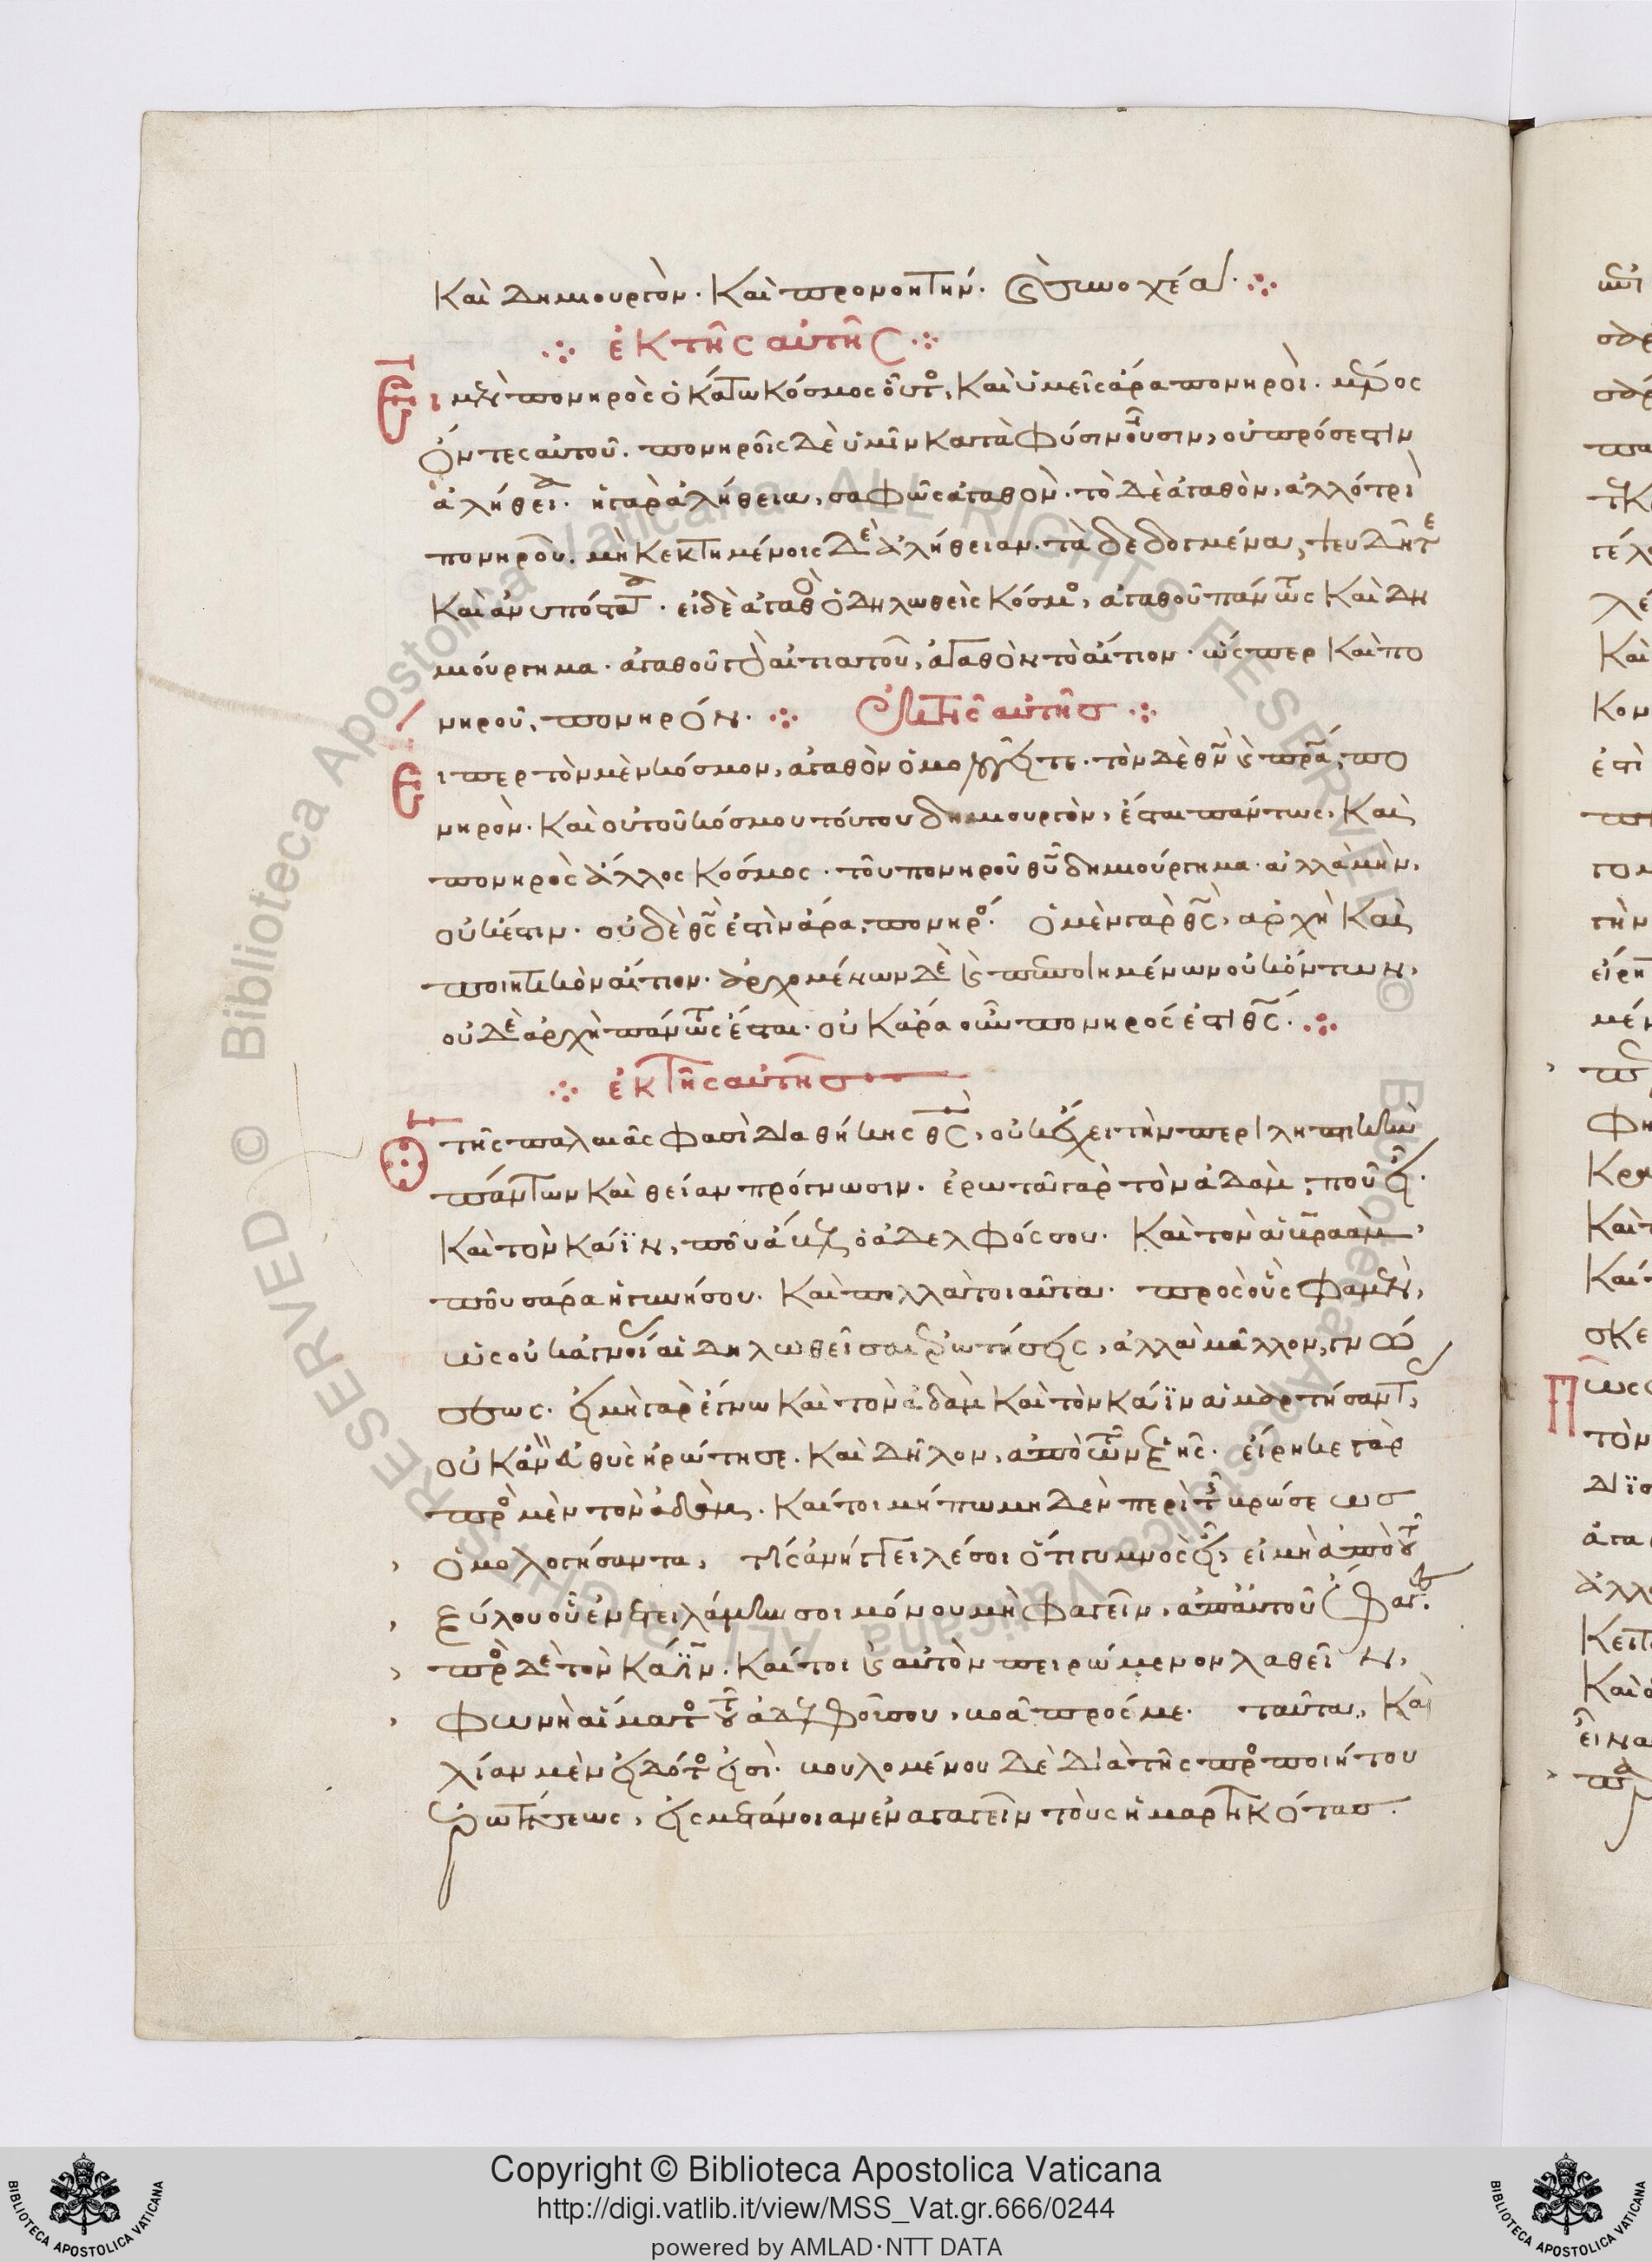 καὶ δημιουργὸν· καὶ προνοητήν. καὶ συνοχέα·
ἐκ τῆς αὐτῆς
Εἰ μὲν πονηρὸς ὁ κάτω κόσμος οὗτος, καὶ ὑμεῖς ἄρα πονηροὶ. μέρος
ὄντες αὐτοῦ. πονηροῖς δὲ ὑμῖν κατὰ φύσιν οὖσιν, οὐ πρόσεστιν
ἀλήθεια. ἡ γὰρ ἀλήθεια, σαφῶς ἀγαθὸν. τὸ δὲ ἀγαθὸν, ἀλλότριον
πονηροῦ. μὴ κεκτημένοις δὲ ἀλήθειαν. τὰ δεδογμένα, ψευδῆ τε
καὶ ἀνυπόστατα. εἰ δὲ ἀγαθὸς ὁ δηλωθεὶς κόσμος, ἀγαθοῦ πάντως καὶ δη
μιούργημα. ἀγαθοῦ γὰρ αἰτιατοῦ, ἀγαθὸν τὸ αἴτιον. ὥσπερ καὶ πο
νηροῦ, πονηρόν. ἐκ τῆς αὐτῆς
Εἴπερ τὸν μὲν κόσμον, ἀγαθὸν ὁμολογεῖτε. τὸν δὲ θεὸν καὶ πατέρα, πο
νηρὸν. καὶ οὐ τοῦ κόσμου τούτου δημιουργὸν, ἔσται πάντως, καὶ
πονηρὸς ἄλλος κόσμος. τοῦ πονηροῦ θεοῦ δημιούργημα. ἀλλὰ μὴν,
οὐκ ἔστιν. οὐδὲ θεὸς ἐστὶν ἄρα, πονηρός. ὁ μὲν γὰρ θεὸς, ἀρχὴ καὶ
ποιητικὸν αἴτιον. ἀρχομένων δὲ καὶ πεποιημένων οὐκ ὄντων,
οὐδὲ ἀρχὴ πάντως ἔσται. οὐκ ἄρα οὖν πονηρός ἐστι θεός.
ἐκ τῆς αὐτῆς
Ὁ τῆς παλαιᾶς φασὶ διαθήκης θεὸς, οὐκ ἔχει τὴν περιληπτικὴν
πάντων καὶ θείαν πρόγνωσιν. ἐρωτᾶ γὰρ τὸν ἀδὰμ, ποῦ εἶ.
καὶ τὸν κάϊν, ποῦ ἄβελ ὁ ἀδελφός σου. καὶ τὸν ἀβραὰμ,
ποῦ σάρα ἡ γυνή σου. καὶ πολλὰ τοιαῦτα. πρὸς οὓς φαμὲν,
ὡς οὐκ ἀγνοίας αἱ δηλωθεῖσαι ἐρωτήσεις, ἀλλὰ μᾶλλον, γνώ
σεως. εἰ μὴ γὰρ ἔγνω καὶ τὸν ἀδὰμ καὶ τὸν κάϊν ἁμαρτήσαντας,
οὐκ ἂν εὐθὺς ἠρώτησε. καὶ δῆλον, ἀπὸ τῶν ἑξῆς. εἴρηκε γὰρ
πρὸς μὲν τὸν ἀδὰμ. καίτοι μήπω μηδὲν περὶ τῆς βρώσεως
ὁμολογήσαντα, τίς ἀνήγγειλέ σοι ὅτι γυμνὸς εἶ, εἰ μὴ ἀπὸ τοῦ
ξύλου οὗ ἐνετειλάμην σοι μόνου μὴ φαγεῖν, ἀπ' αὐτοῦ ἔφαγες.
πρὸς δὲ τὸν κάϊν. καίτοι καὶ αὐτὸν πειρώμενον λαθεῖν,
φωνὴ αἵματος τοῦ ἀδελφοῦ σου, βοᾶ πρός με. ταῦτα, καὶ
λίαν μὲν εἰδότος εἰσὶ. βουλομένου δὲ διὰ τῆς προσποιήτου
ἐρωτήσεως, εἰς μετάνοιαν ἐναγαγεῖν τοὺς ἡμαρτηκότας.
Copyright © Biblioteca Apostolica Vaticana
http://digi.vatlib.it/view/MSS_Vat.gr.666/0244
powered by AMLAD·NTT DATA